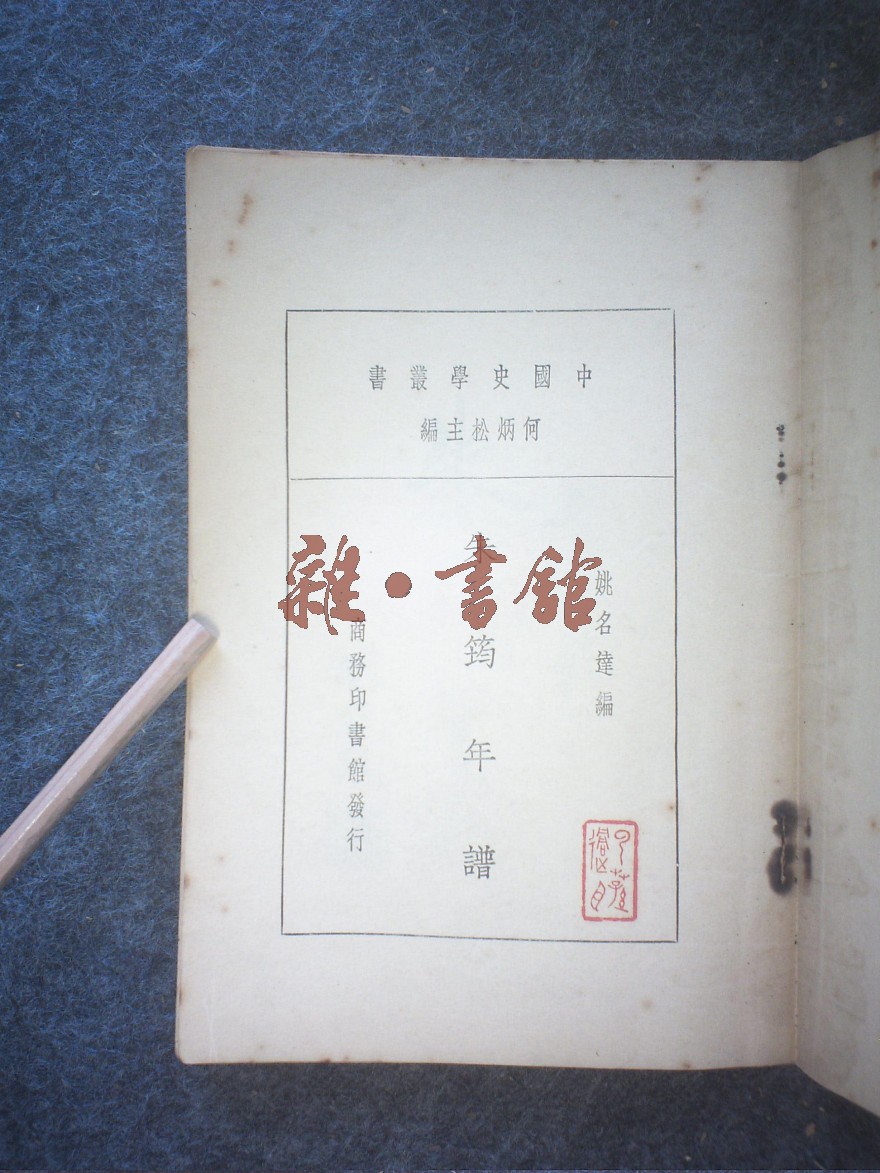 中國史學叢書
何炳松主編
姚名達編
朱筠年譜
商務印書館發行
雜·書館